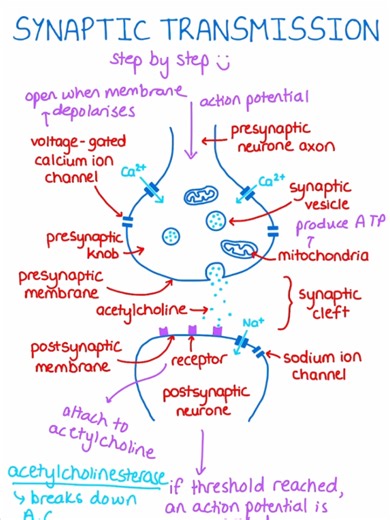 SYNAPTIC TRANSMISSION
step by step
open when membrane
depolarises
action potential
voltage-gated
calcium ion
channel
presynaptic
neurone axon
Ca²⁺
Ca²⁺
synaptic
vesicle
produce ATP
presynaptic
knob
mitochondria
presynaptic
membrane
acetylcholine
synaptic
cleft
Na⁺
postsynaptic
membrane
receptor
sodium ion
channel
postsynaptic
neurone
attach to
acetylcholine
acetylcholinesterase
breaks down
if threshold reached,
an action potential is